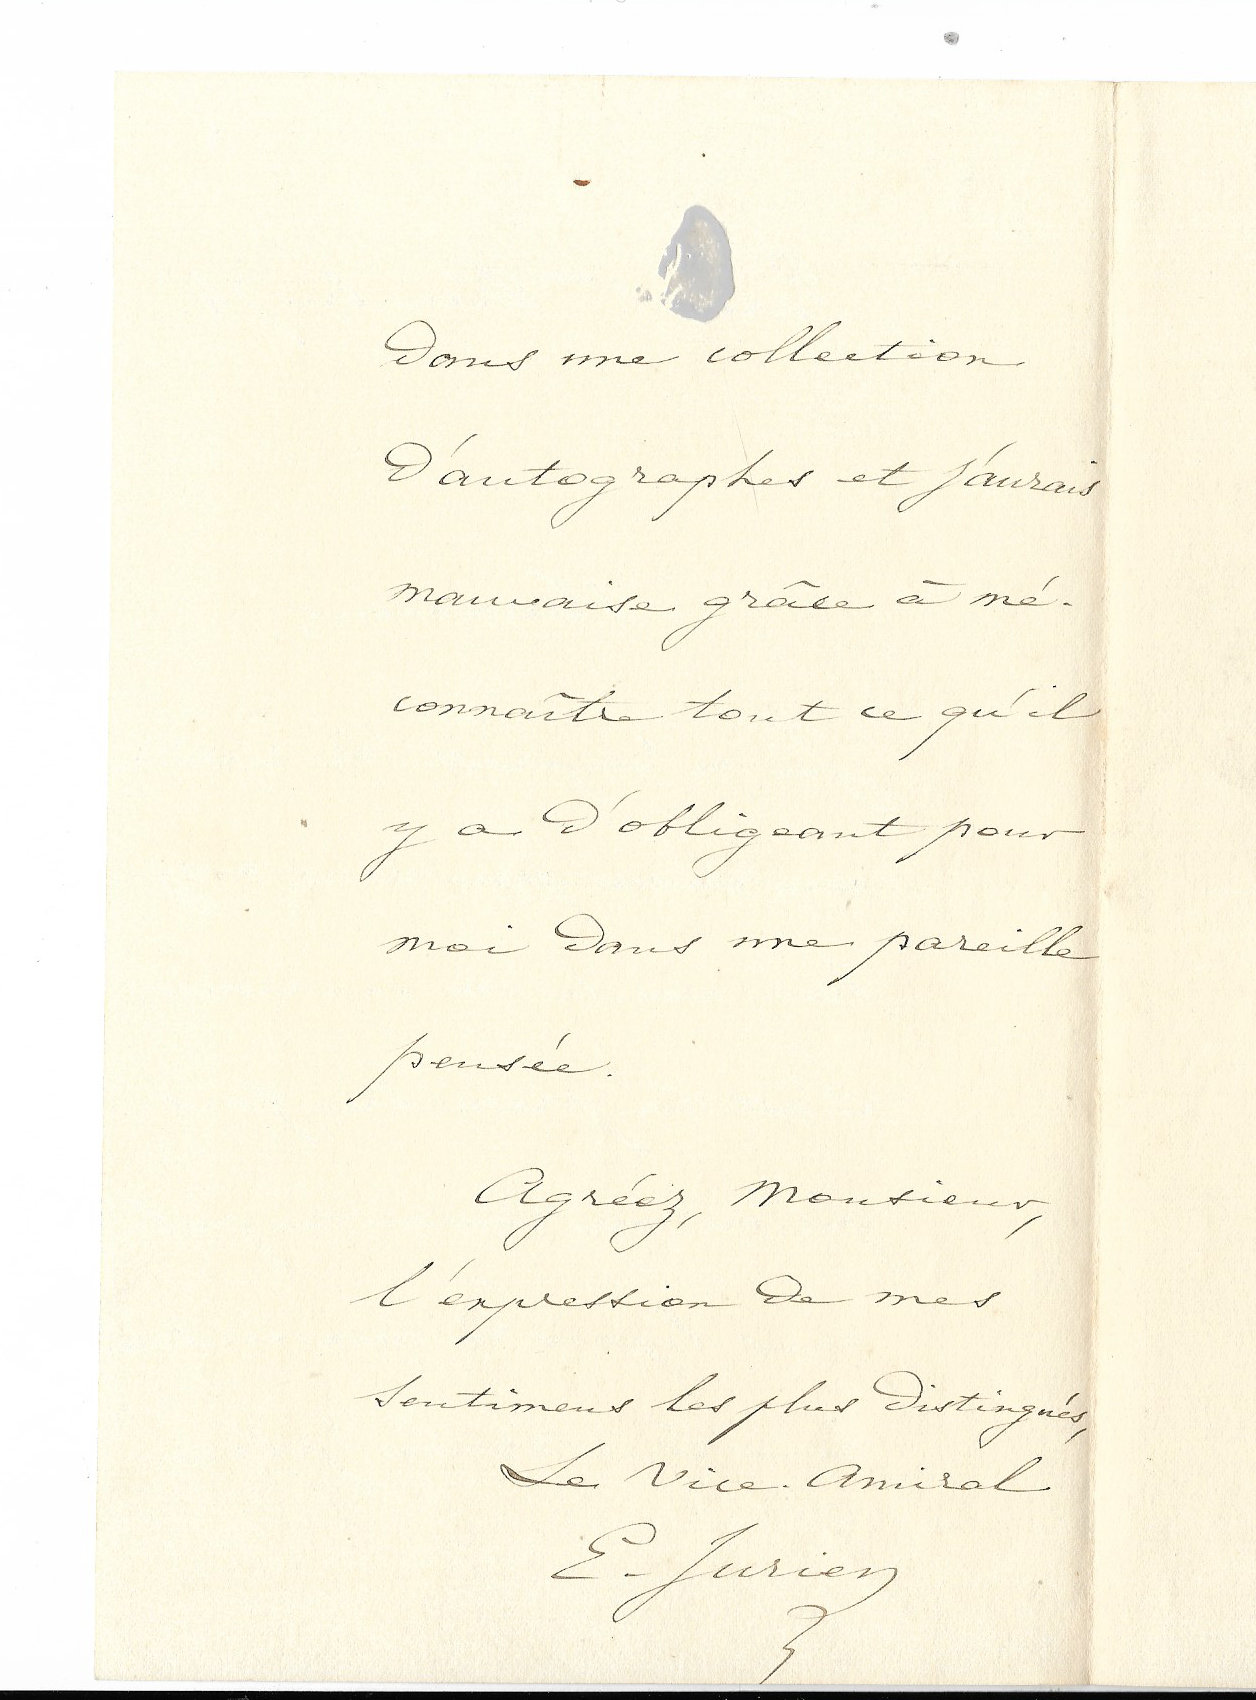 dans une collection
d'autographes et j'aurais
mauvaise grâce à mé-
connaître tout ce qu'il
y a d'obligeant pour
moi dans une pareille
pensée.
Agréez, Monsieur,
l'expression de mes
sentimens les plus distingués,
Le Vice-Amiral
E. Jurien